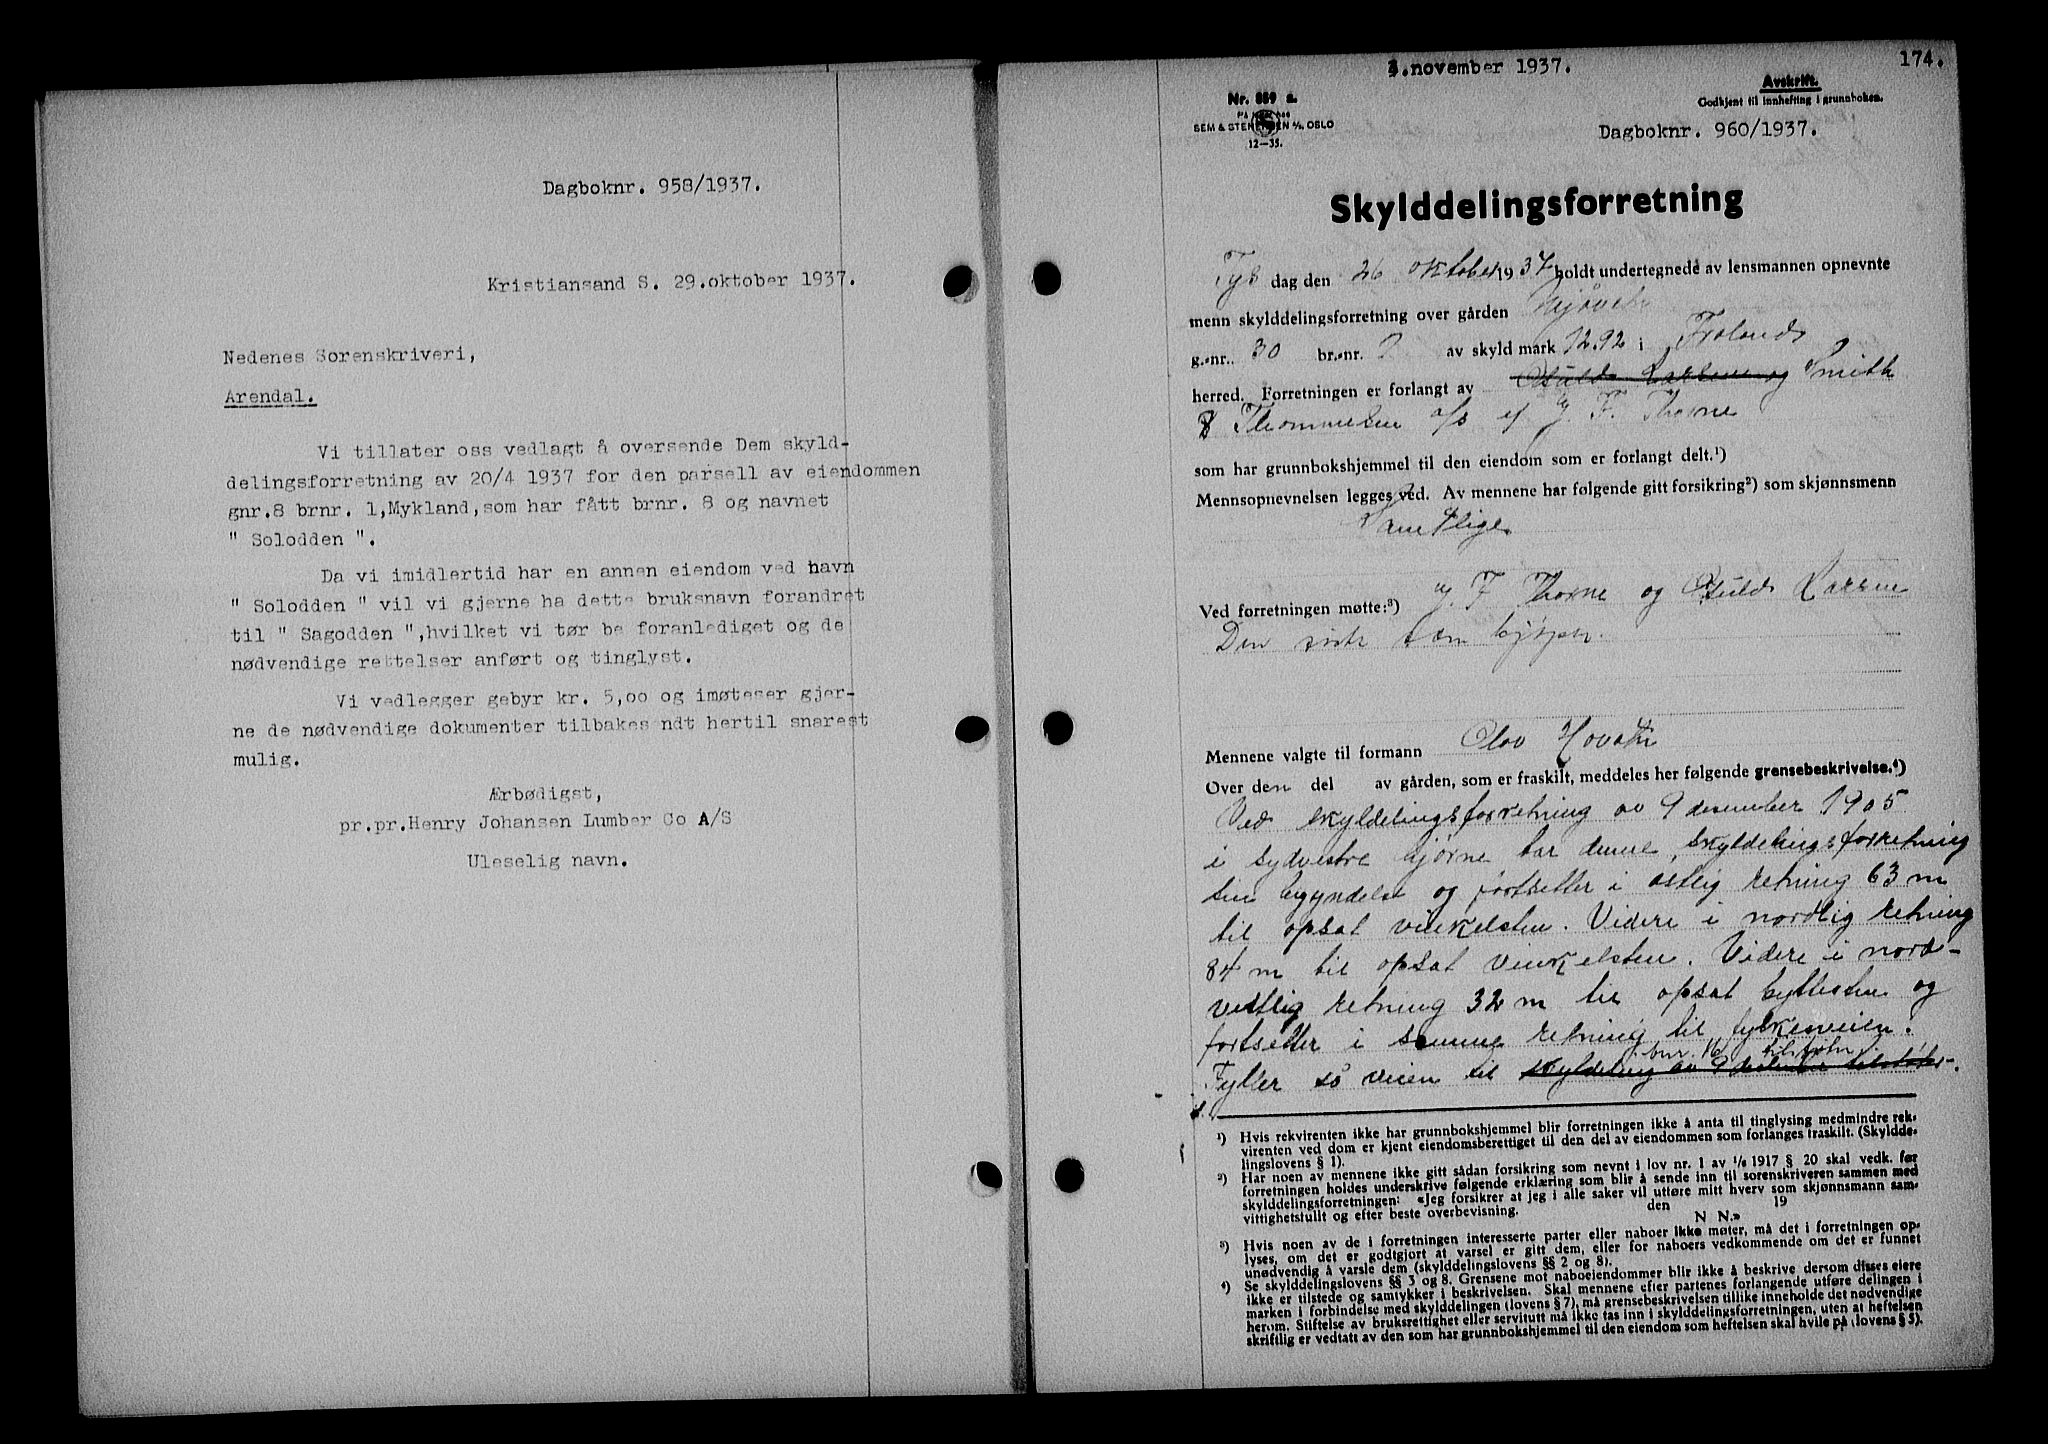 Dagboknr. 958/1937.
Kristiansand S. 29.oktober 1937.
Nedenes Sorenskriveri,
Arendal.
Vi tillater oss vedlagt å oversende Dem skyld-
delingsforretning av 20/4 1937 for den parsell av eiendommen
gnr.8 brnr. 1,Mykland,som har fått brnr. 8 og navnet
" Solodden ".
Da vi imidlertid har en annen eiendom ved navn
" Solodden " vil vi gjerne ha dette bruksnavn forandret
til " Sagodden ",hvilket vi tør be foranlediget og de
nødvendige rettelser anført og tinglyst.
Vi vedlegger gebyr kr. 5,00 og imøteser gjer-
ne de nødvendige dokumenter tilbakesendt hertil snarest
mulig.
Ærbødigst,
pr.pr.Henry Johansen Lumber Co A/S
Uleselig navn.
3.november 1937.
174.
Nr. 859 a.
På lager hos
SEM & STENERSEN A/S, OSLO
12-35.
Avskrift.
Godkjent til innhefting i grunnboken.
Dagboknr. 960/1937.
Skylddelingsforretning
Tys dag den 26 oktober 1937 holdt undertegnede av lensmannen opnevnte
menn skylddelingsforretning over gården
g.-nr. 30 br.-nr. 7 av skyld mark 12.92 i Frolands
herred. Forretningen er forlangt av og Smith
& Thommesen a/s v/ F. Thorne
som har grunnbokshjemmel til den eiendom som er forlangt delt.¹)
Mennsopnevnelsen legges ved. Av mennene har følgende gitt forsikring²) som skjønnsmenn
Samtlige
Ved forretningen møtte:³) F Thorne og Larsen
Den siste som kjøper.
Mennene valgte til formann Olav
Over den del av gården, som er fraskilt, meddeles her følgende grensebeskrivelse.⁴)
Ved skyldelingsforretning av 9 desember 1905
i sydvestre hjørne tar denne skyldelingsforretning
sin begyndelse og fortsetter i østlig retning 63 m
til opsat vinkelsten. Videre i nordlig retning
84 m til opsat vinkelsten. Videre i nord-
vestlig retning 32 m til opsat byttesten og
fortsetter i samme retning til fylkesveien.
Fyller så veien til skyldeling av 9 desember tilstøter.
bnr. 16 tilstøter
¹) Hvis rekvirenten ikke har grunnbokshjemmel blir forretningen ikke å anta til tinglysing medmindre rek-
virenten ved dom er kjent eiendomsberettiget til den del av eiendommen som forlanges fraskilt. (Skyldde-
lingslovens § 1).
²) Har noen av mennene ikke gitt sådan forsikring som nevnt i lov nr. 1 av 1/6 1917 § 20 skal vedk. før
forretningen holdes underskrive følgende erklæring som blir å sende inn til sorenskriveren sammen med
skylddelingsforretningen: «Jeg forsikrer at jeg i alle saker vil utføre mitt hverv som skjønnsmann sam-
vittighetsfullt og efter beste overbevisning. den 19
N N.»
³) Hvis noen av de i forretningen interesserte parter eller naboer ikke møter, må det i forretningen op-
lyses, om det er godtgjort at varsel er gitt dem, eller for naboers vedkommende om det er funnet
unødvendig å varsle dem (skylddelingslovens §§ 2 og 8).
⁴) Se skylddelingslovens §§ 3 og 8. Grensene mot naboeiendommer blir ikke å beskrive dersom disses eiere
ikke er tilstede og samtykker i beskrivelsen. Skal mennene efter partenes forlangende utføre delingen i
marken i forbindelse med skylddelingen (lovens § 7), må grensebeskrivelsen tillike inneholde det nødvendige
herom. Stiftelse av bruksrettighet eller servitutt må ikke tas inn i skylddelingsforretningen, uten at heftelsen
skriftlig er vedtatt av den som har grunnbokshjemmel til den eiendom som heftelsen skal hvile på (lovens § 5).